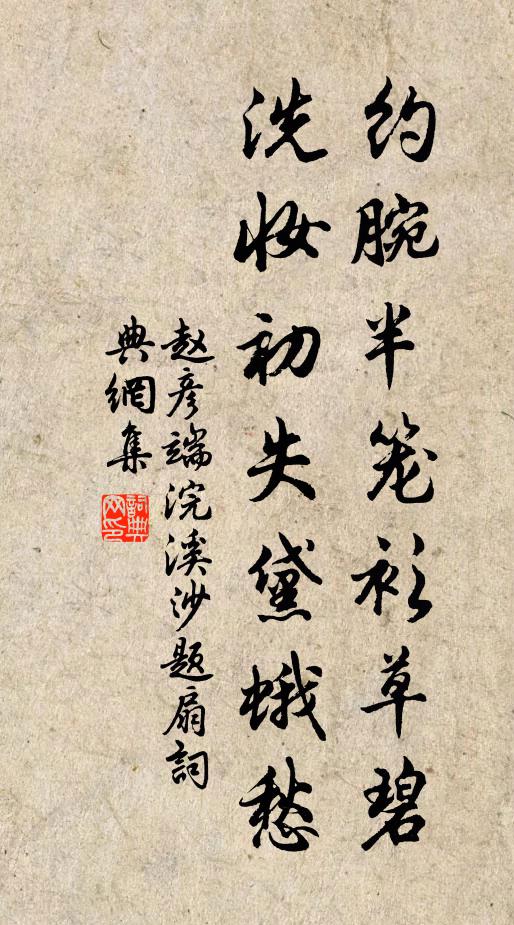 约腕半笼衫草碧
洗妆初失黛蛾愁
赵彦端浣溪沙题扇詞
典網集
詞典网印